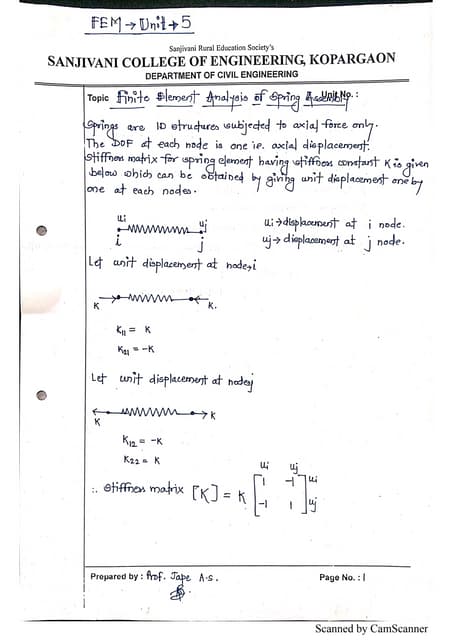 FEM → Unit → 5
Sanjivani Rural Education Society's
SANJIVANI COLLEGE OF ENGINEERING, KOPARGAON
DEPARTMENT OF CIVIL ENGINEERING
Topic Finite Element Analysis of Spring Assembly Unit No. :
Springs are 1D structures subjected to axial force only.
The DOF at each node is one ie. axial displacement.
Stiffness matrix for spring element having stiffness constant K is given
below which can be obtained by giving unit displacement one by
one at each nodes.
ui uj ui → displacement at i node.
i j uj → displacement at j node.
Let unit displacement at node, i
K K.
K11 = K
K21 = -K
Let unit displacement at node j
K K
K12 = -K
K22 = K
ui uj
∴ Stiffness matrix [K] = K [ 1 -1 ] ui
-1 1 uj
Prepared by : Prof. Jape A.S. Page No. : 1
Scanned by CamScanner